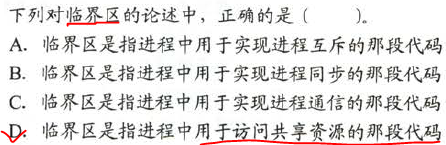 下列对临界区的论述中，正确的是（　　）。
A. 临界区是指进程中用于实现进程互斥的那段代码
B. 临界区是指进程中用于实现进程同步的那段代码
C. 临界区是指进程中用于实现进程通信的那段代码
D. 临界区是指进程中用于访问共享资源的那段代码